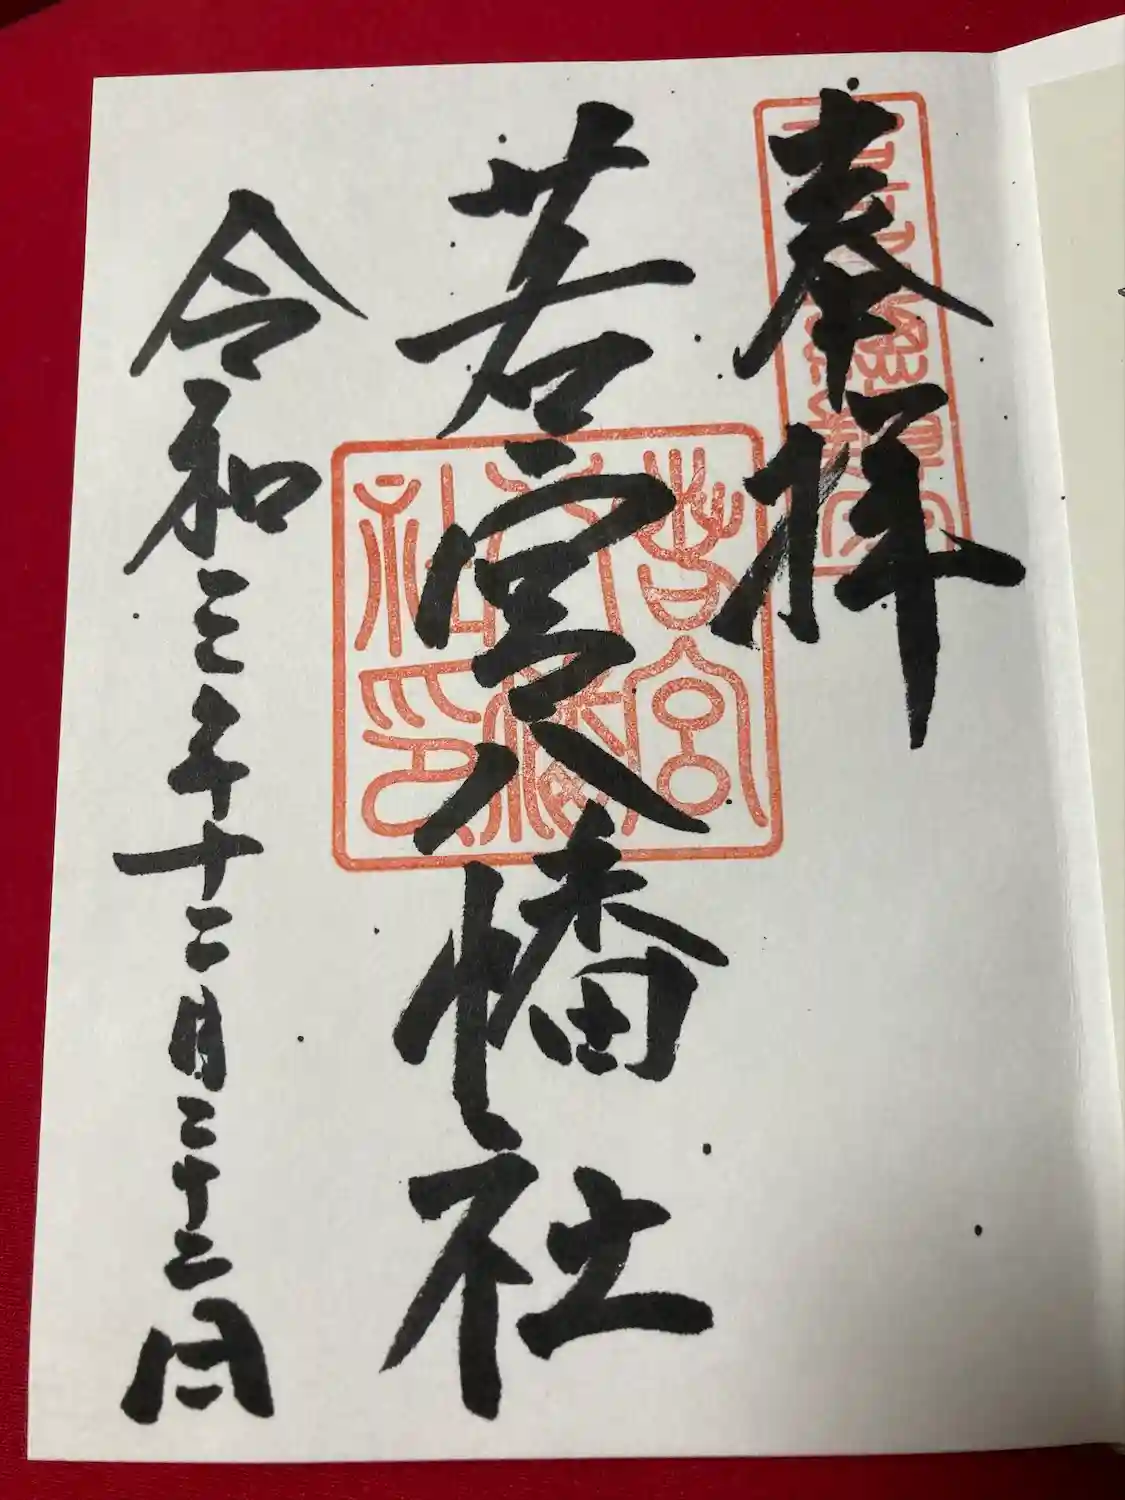 奉拝
若宮八幡社
令和三年十二月二十二日
若宮
八幡
社印